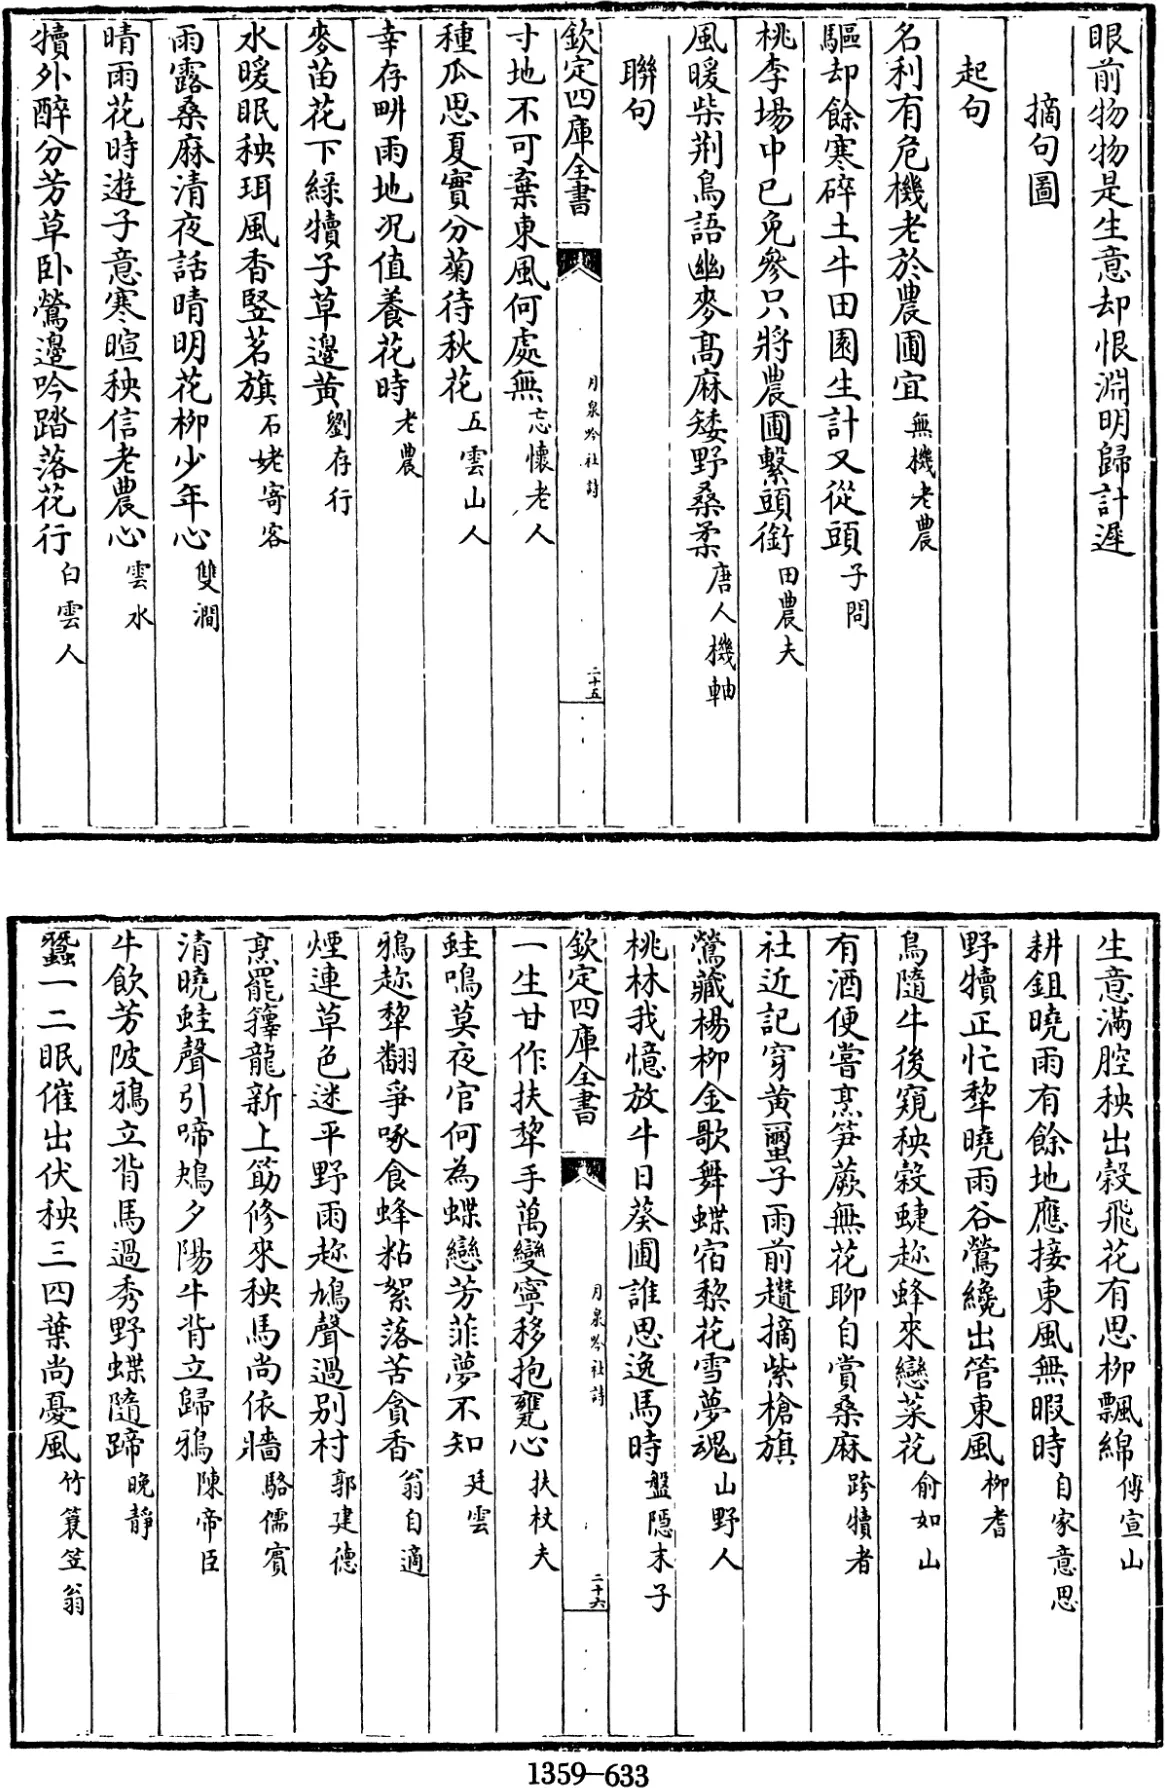 眼前物物是生意却恨淵明歸計遲
摘句圖
起句
名利有危機老於農圃宜無機老農
驅却餘寒碎土牛田園生計又從頭子問
桃李場中已免參只將農圃繫頭銜田農夫
風暖柴荆鳥語幽麥髙麻矮野桑柔唐人機軸
聯句
欽定四庫全書
月泉吟社詩
二十五
寸地不可棄東風何處無忘懷老人
種瓜思夏實分菊待秋花五雲山人
幸存畊雨地况值養花時老農
麥苗花下綠犢子草邊黄劉存行
水暖眠秧珥風香竪茗旗石姥寄客
雨露桑麻清夜話晴明花柳少年心雙澗
晴雨花時遊子意寒暄秧信老農心雲水
犢外醉分芳草卧鶯邊吟踏落花行白雲人
生意滿腔秧出穀飛花有思柳飄綿傅宣山
耕鉏曉雨有餘地應接東風無暇時自家意思
野犢正忙犂曉雨谷鶯纔出管東風柳耆
鳥隨牛後窺秧穀蜨趂蜂來戀菜花俞如山
有酒便嘗烹笋蕨無花聊自賞桑麻跨犢者
社近記穿黄蠒子雨前趲摘紫槍旗
鶯藏楊柳金歌舞蝶宿棃花雪夢魂山野人
桃林我憶放牛日葵圃誰思逸馬時盤隱末子
欽定四庫全書
月泉吟社詩
二十六
一生甘作扶犂手萬變寧移抱甕心扶杖夫
蛙鳴莫夜官何為蝶戀芳菲夢不知廷雲
鴉趂犂翻爭啄食蜂粘絮落苦貪香翁自適
煙連草色迷平野雨趂鳩聲過别村郭建德
烹罷籜龍新上筯修來秧馬尚依牆駱儒賓
清曉蛙聲引啼鴂夕陽牛背立歸鴉陳帝臣
牛飲芳陂鴉立背馬過秀野蝶隨蹄晚靜
蠶一二眠催出伏秧三四葉尚憂風竹簑笠翁
1359-633